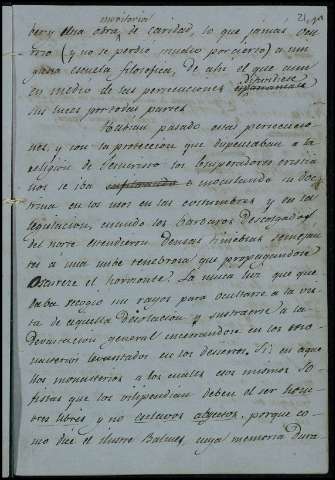 meritoria
21
ber y una obra de caridad, lo que jamás
(y no se perdió mucho por cierto) a nin
guna escuela filosófica, de ahí el que aun
en medio de las persecuciones difundiese
sus luces por todas partes.
Habían pasado esas persecucio
nes, y con la protección que dispensaban a la
religión de Jesucristo los Emperadores cristia
nos se iba inoculando su doc
trina en los usos en las costumbres y en la
legislación, cuando los bárbaros descolgados
del norte estendieron densas tinieblas semejan
tes a una nube tenebrosa que propagandose
oscurece el horizonte. La única luz que que
daba recogió sus rayos para ocultarse a la vis
ta de aquella desolación y sustraerse a la
devastación general encerrandose en los mo
nasterios levantados en los desiertos. Sí; en aque
llos monasterios a los cuales esos mismos so
fistas que los vilipendian deben el ser hom
bres libres y no esclavos abyectos, porque co
mo dice el ilustre Balmes, cuya memoria dura